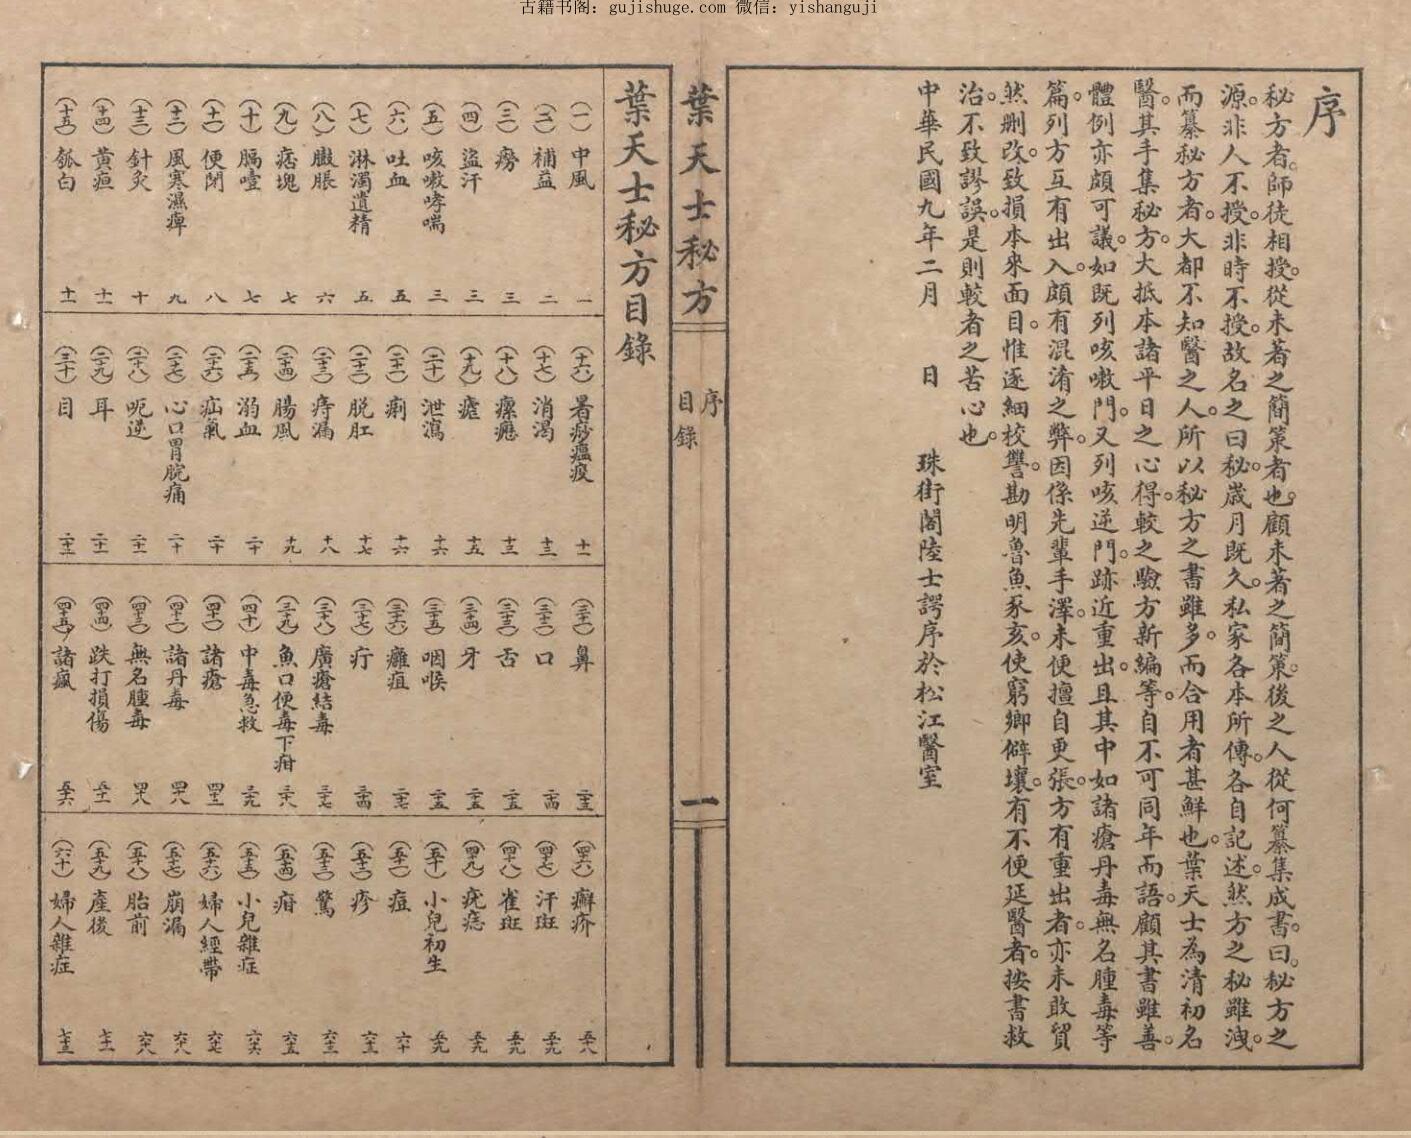 古籍书阁：gujishuge.com 微信：yishanguji
序
秘方者。師徒相授。從未著之簡策者也。顧未著之簡策。後之人從何纂集成書。曰。秘方之
源。非人不授。非時不授。故名之曰秘。歲月既久。私家各本所傳。各自記述。然方之秘雖洩。
而纂秘方者。大都不知醫之人。所以秘方之書雖多。而合用者甚鮮也。葉天士為清初名
醫。其手集秘方。大抵本諸平日之心得。較之驗方新編等。自不可同年而語。顧其書雖善。
體例亦頗可議。如既列咳嗽門。又列咳逆門。跡近重出。且其中如諸瘡丹毒無名腫毒等
篇。列方互有出入。頗有混淆之弊。因係先輩手澤。未便擅自更張。方有重出者。亦未敢貿
然删改。致損本來面目。惟逐細校讐。勘明魯魚豕亥。使窮鄉僻壤。有不便延醫者。按書救
治。不致謬誤。是則較者之苦心也。
中華民國九年二月 日 珠街閣陸士諤序於松江醫室
葉天士秘方
序
目錄
一
葉天士秘方目錄
(一)中風 一
(二)補益 二
(三)癆 三
(四)盜汗 三
(五)咳嗽哮喘 三
(六)吐血 五
(七)淋濁遺精 五
(八)臌脹 六
(九)痞塊 七
(十)膈噎 七
(十一)便閉 八
(十二)風寒濕痺 九
(十三)針灸 十
(十四)黃疸 十一
(十五)瓠白 十一
(十六)暑痧瘟疫 十一
(十七)消渴 十三
(十八)瘰癧 十三
(十九)瘧 十五
(二十)泄瀉 十六
(二十一)痢 十六
(二十二)脫肛 十七
(二十三)痔漏 十八
(二十四)腸風 十九
(二十五)溺血 二十
(二十六)疝氣 二十
(二十七)心口胃脘痛 二十
(二十八)呃逆 二十一
(二十九)耳 二十一
(三十)目 二十二
(三十一)鼻 二十三
(三十二)口 二十四
(三十三)舌 二十五
(三十四)牙 二十五
(三十五)咽喉 二十五
(三十六)癰疽 二十七
(三十七)疔 三十四
(三十八)廣瘡結毒 三十七
(三十九)魚口便毒下疳 三十八
(四十)中毒急救 三十九
(四十一)諸瘡 四十三
(四十二)諸丹毒 四十八
(四十三)無名腫毒 四十八
(四十四)跌打損傷 五十一
(四十五)諸瘋 五十六
(四十六)癬疥 五十八
(四十七)汗斑 五十九
(四十八)雀斑 五十九
(四十九)疣痣 五十九
(五十)小兒初生 五十九
(五十一)痘 六十
(五十二)疹 六十三
(五十三)驚 六十三
(五十四)疳 六十五
(五十五)小兒雜症 六十六
(五十六)婦人經帶 六十七
(五十七)崩漏 六十八
(五十八)胎前 六十八
(五十九)產後 七十一
(六十)婦人雜症 七十三